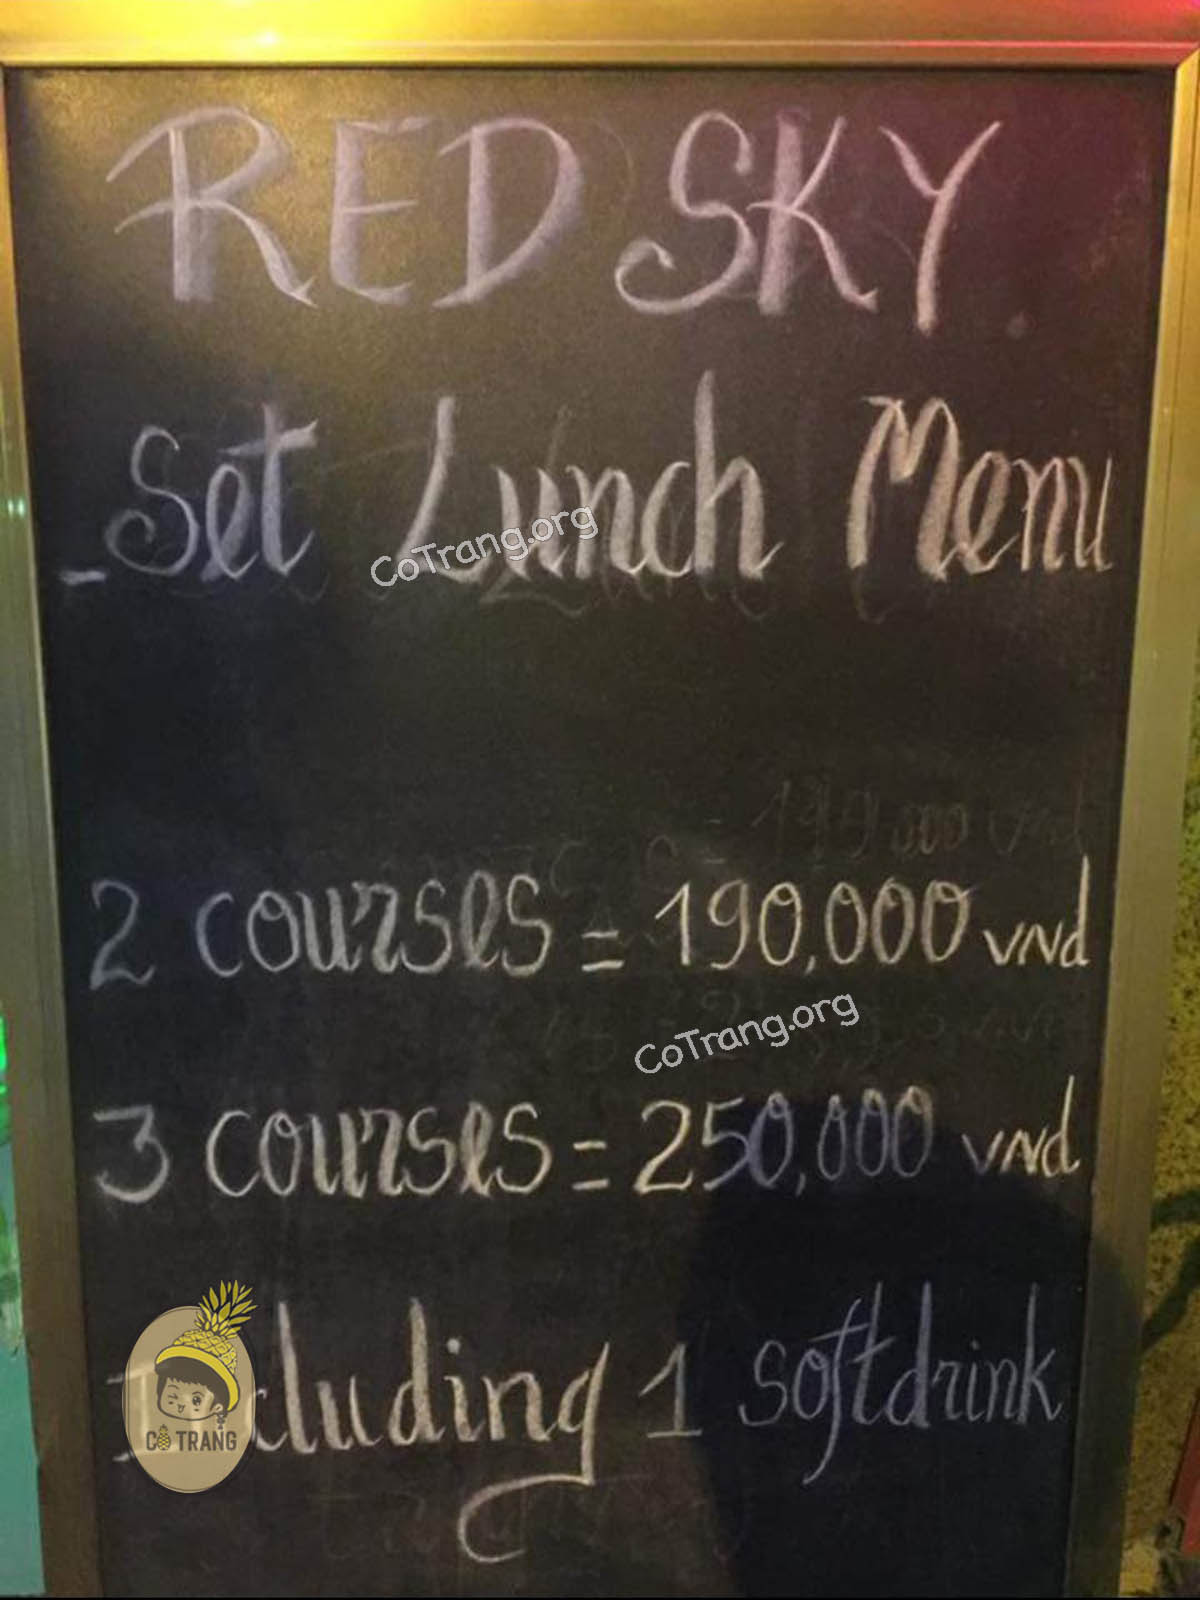 RED SKY
- Set Lunch Menu
CoTrang.org
2 courses = 190,000 vnd
CoTrang.org
3 courses = 250,000 vnd
Including 1 softdrink
CÔ TRANG